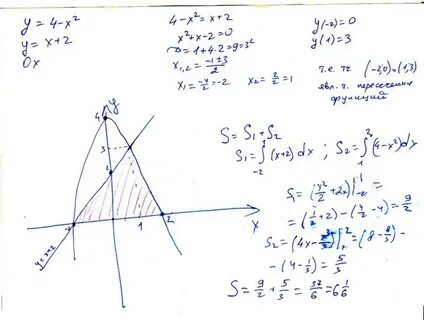 y = 4-x²
y = x+2
Ox
4-x² = x+2
x²+x-2=0
D=1+4·2=9=3²
x₁,₂ = (-1±3)/2
x₁ = -4/2 = -2    x₂ = 2/2 = 1
y(-2)=0
y(1)=3
т.е. тч (-2;0) и (1,3)
явл. т. пересечения
функций
S = S₁ + S₂
S₁ = ∫₋₂¹ (x+2)dx ; S₂ = ∫₁² (4-x²)dx
S₁ = (x²/2 + 2x)|₋₂¹ =
= (1/2 + 2) - (4/2 - 4) = 9/2
S₂ = (4x - x³/3)|₁² = (8 - 8/3) -
- (4 - 1/3) = 5/3
S = 9/2 + 5/3 = 37/6 = 6 1/6
y
4
3
2
-2
1
2
x
y = x+2